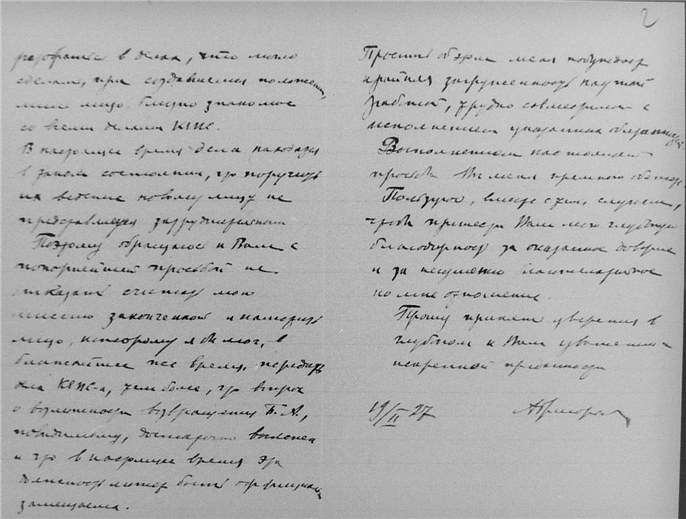 2
разобраться в делах, что могло
сделать, при создавшемся положении,
лишь лицо близко знакомое
со всеми делами КЕПС.
В настоящее время дела находятся
в таком состоянии, что поручить
их ведение новому лицу не
представляется затруднительным
Поэтому обращаюсь к Вам с
покорнейшей просьбой не
отказать считать мою
миссию законченной и наметить
лицо, которому я бы мог, в
ближайшее же время, передать
дела КЕПС-а, тем более, что вопрос
о возможности возвращения Б. А.,
повидимому, достаточно выяснен
и что в настоящее время эта
должность может быть официально
замещена.
Просить об этом меня побуждает
крайняя загруженность научной
работой, трудно совместимой с
исполнением указанных обязанностей.
Выполнением настоящей
просьбы Вы меня премного обяжете.
Пользуюсь, вместе с тем, случаем,
чтобы принести Вам мою глубокую
благодарность за оказанное доверие
и за неизменно благожелательное
ко мне отношение.
Прошу принять уверения в
глубоком к Вам уважении и
искренней преданности
19/II 27